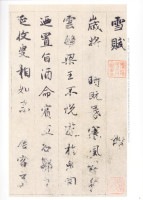 雪賦
歲將暮時既昏寒風積愁
雲繁梁王不悅游於兔園
迺置旨酒命賓友召鄒
延枚叟相如末至居客